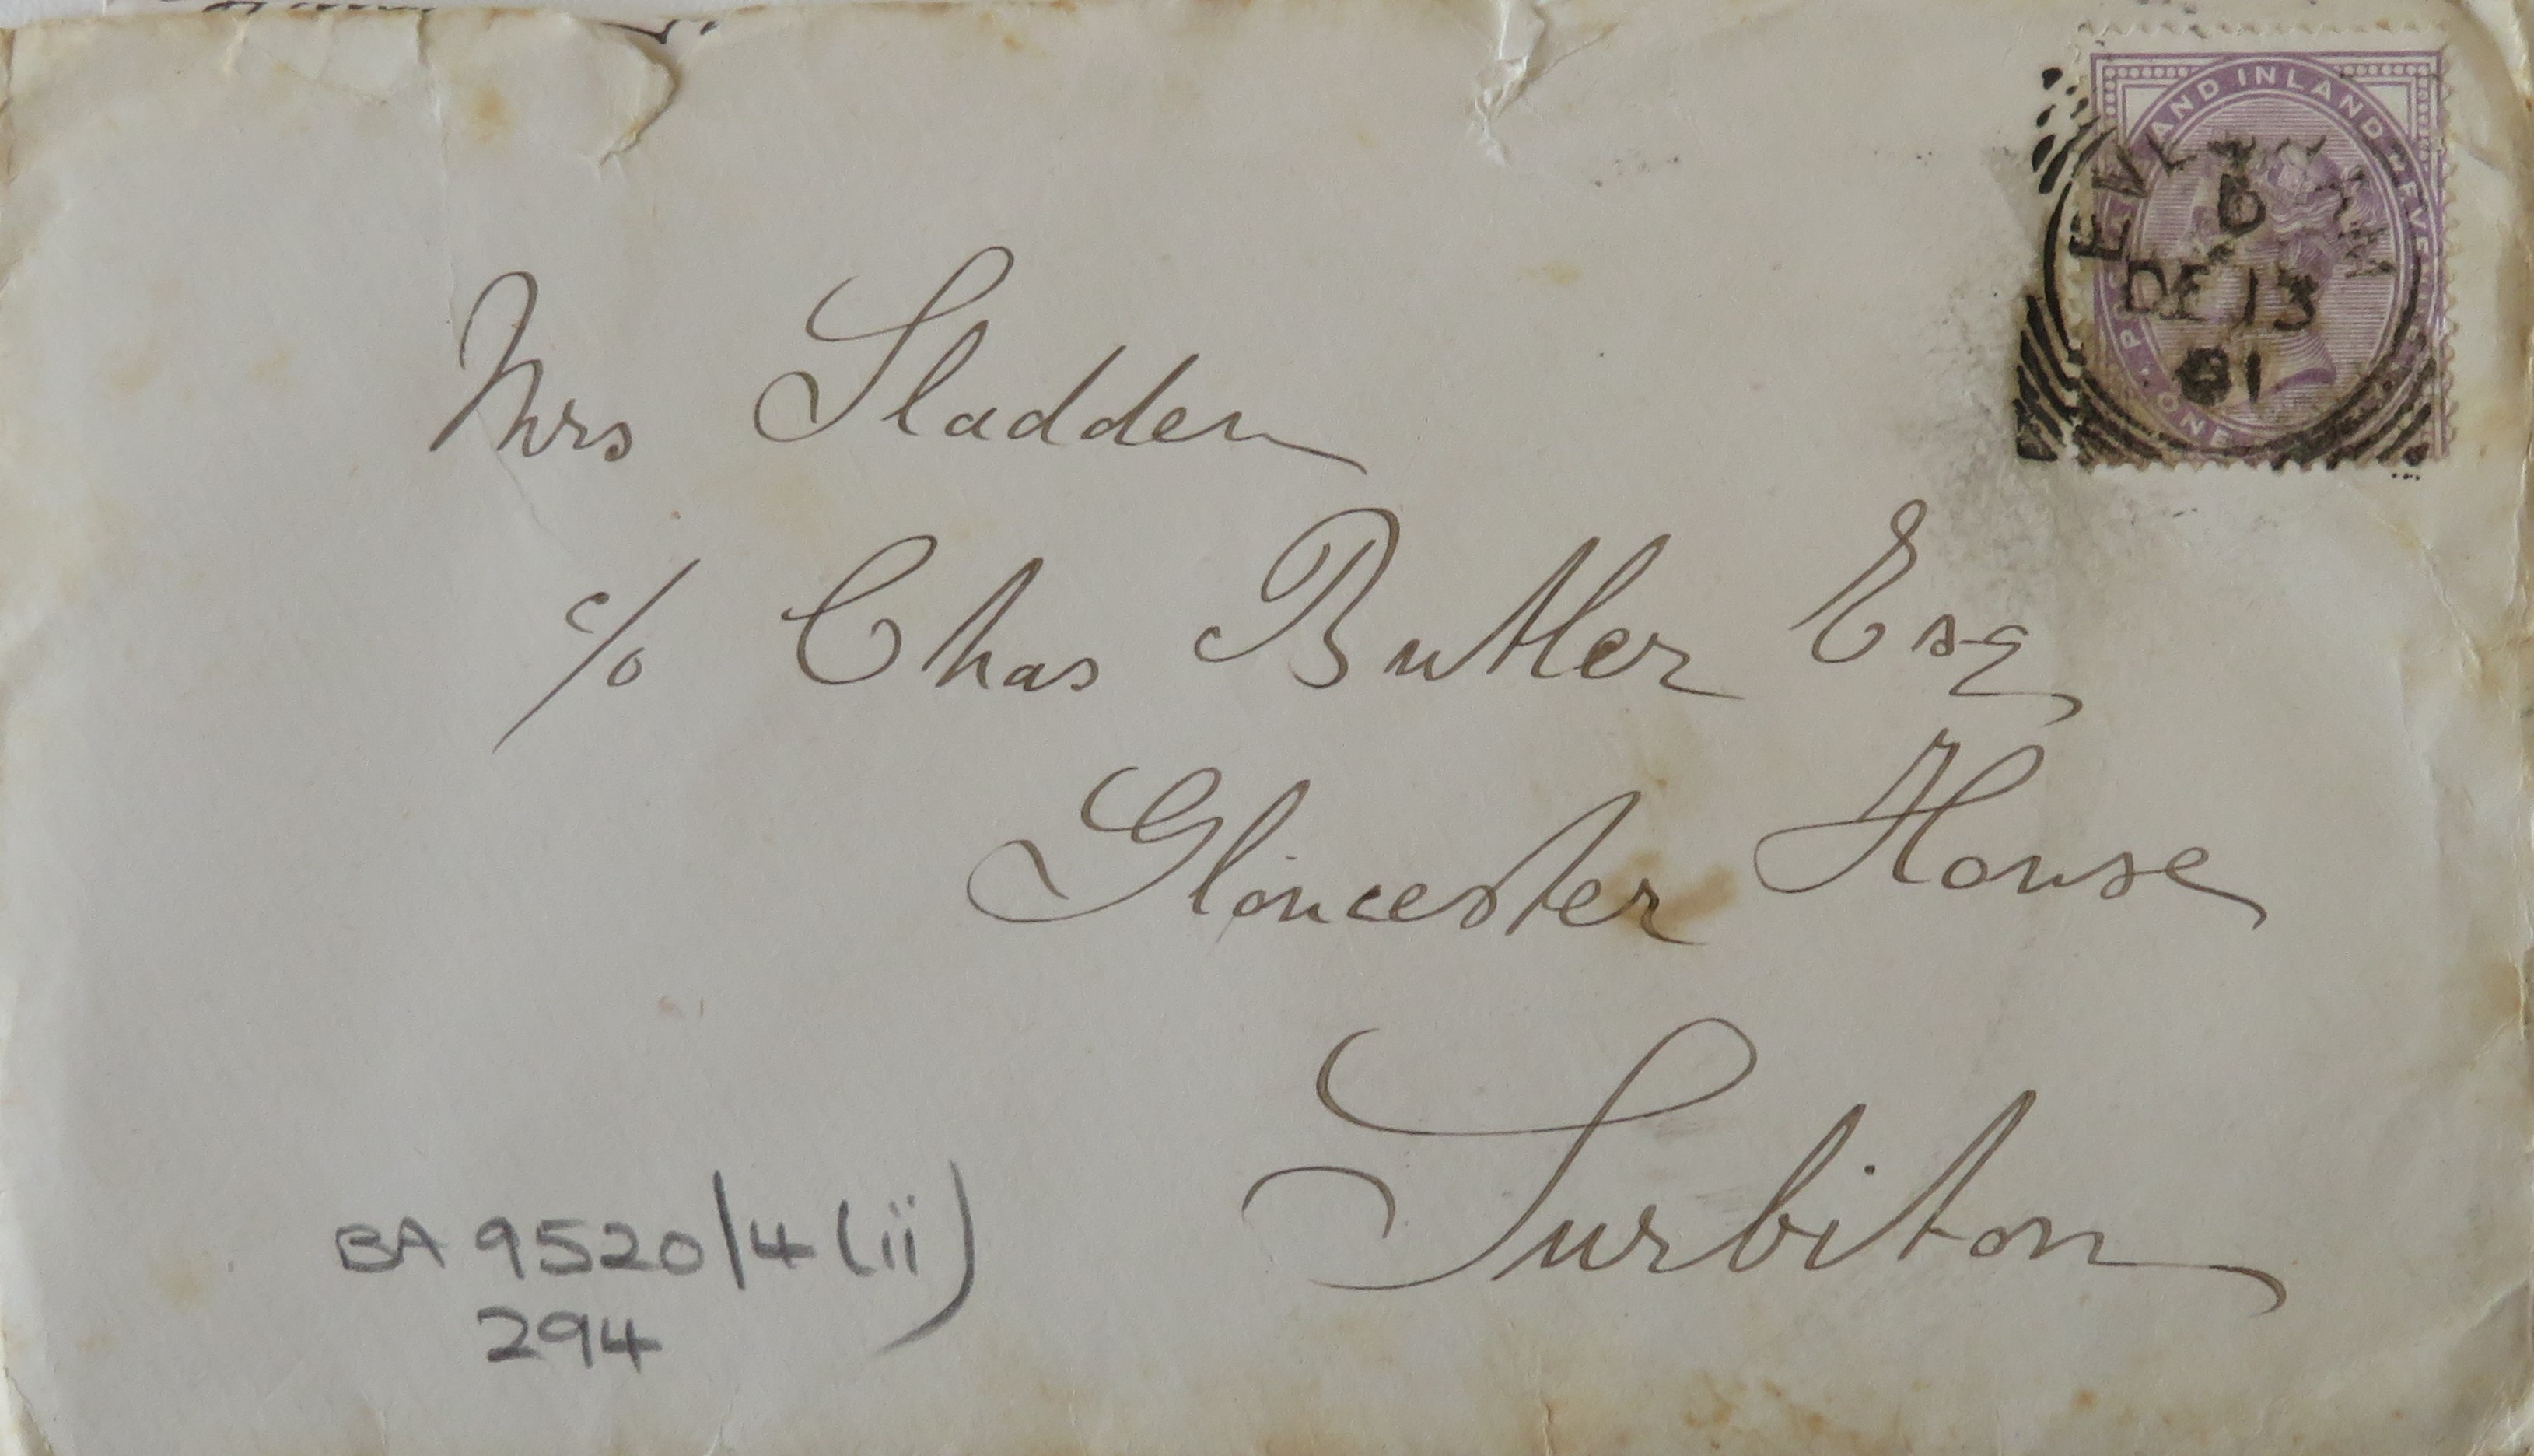 Mrs Sladden
c/o Chas Butler Esq
Gloucester House
Surbiton
BA 9520/4 (ii)
294
AND INLAND REVENUE
ONE
DE 13